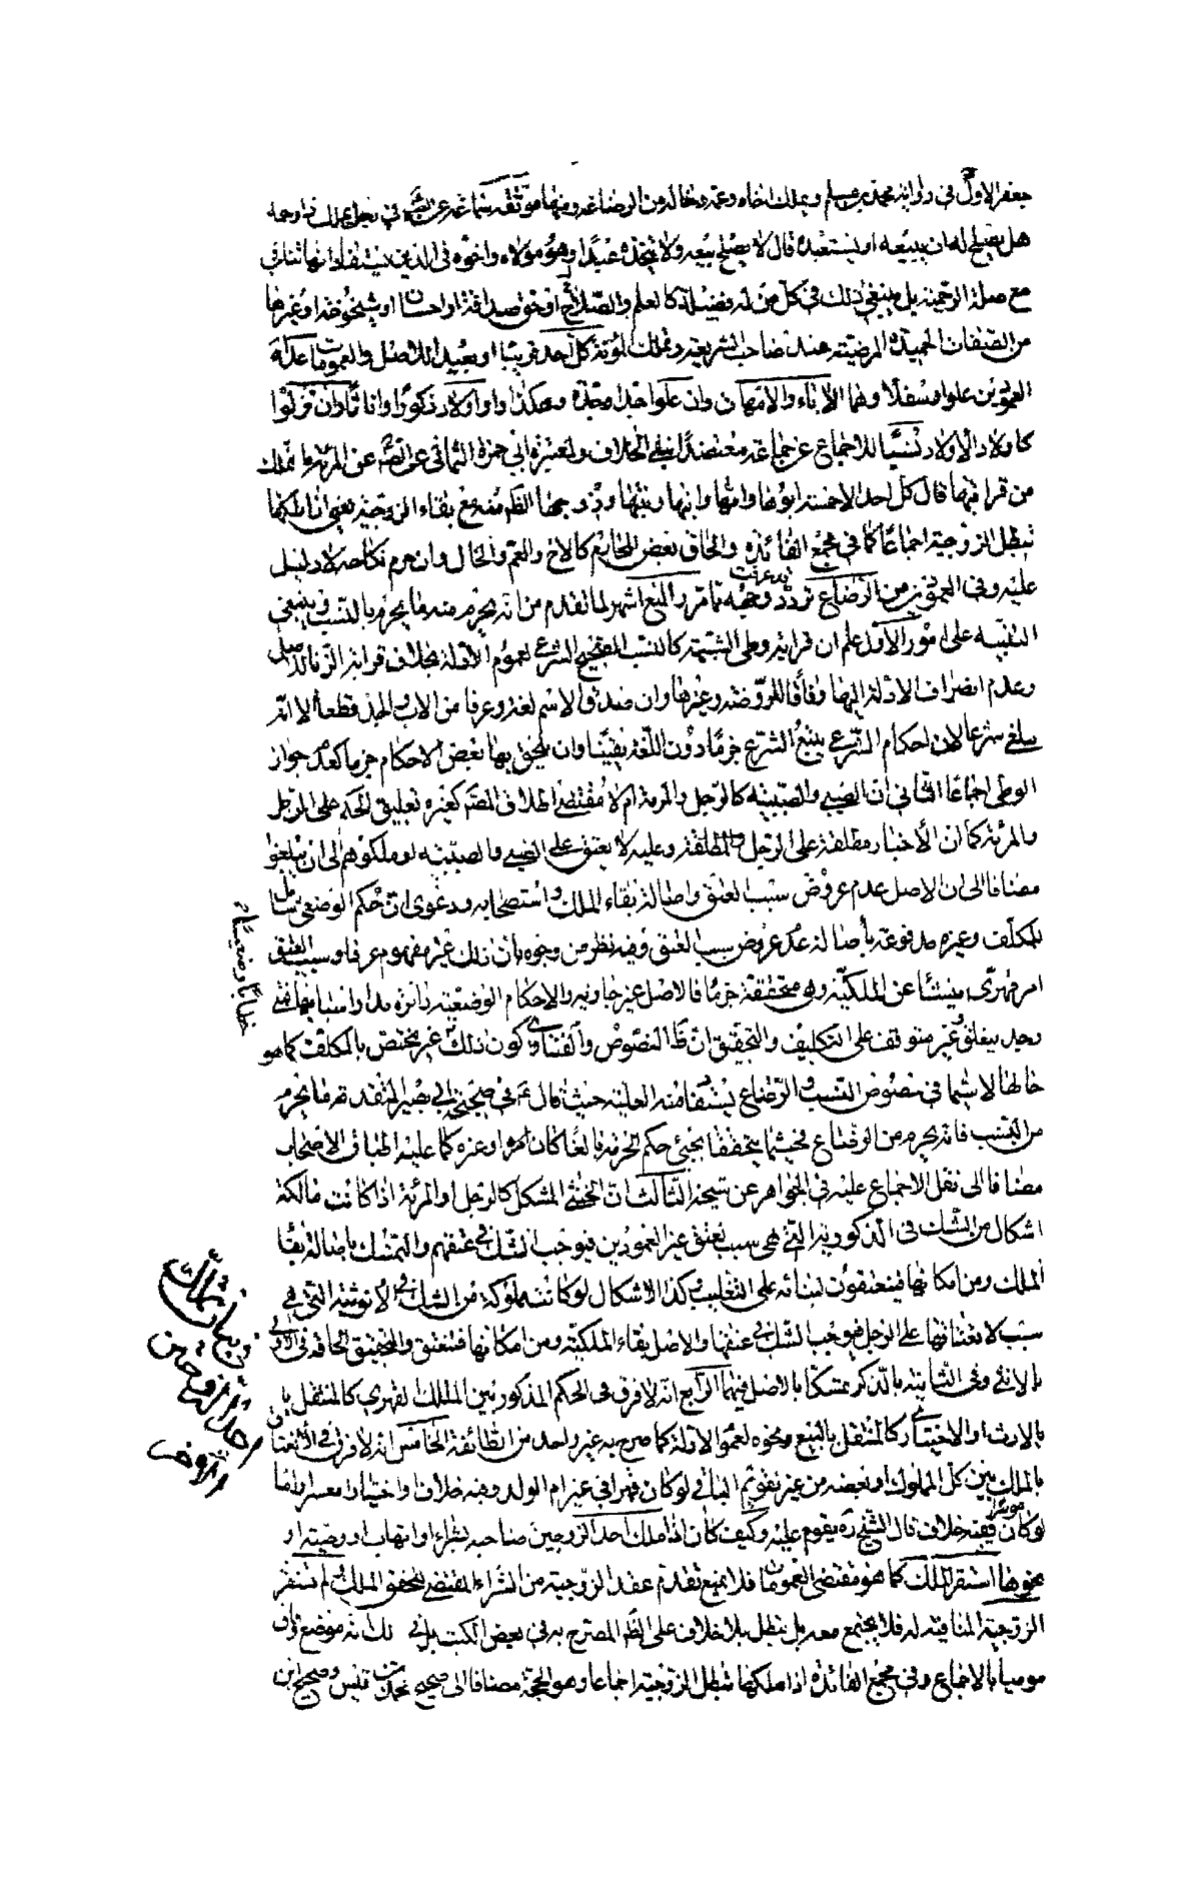 جعفر الاول في رواية محمد بن مسلم ويملك اخاه وعمه وخاله من الرضاعة ومنها موثقة سماعة عن في رجل يملك ذا رحمه
هل يصلح له ان يبيعه او يستعبده قال لا يصلح بيعه ولا يتخذه عبدا وهو مولاه واخوه في الدين
مع صلة الرحمية بل ينبغي ذلك في كل من له فضيلة كالعلم والصلاح او حق صداقة او احسان او شيخوخة او غيرها
من الصفات الحميدة المرضية عند صاحب الشريعة وتملك المرئة كل احد قريبا او بعيدا للاصل والعمومات عدا
العمودين علوا وسفلا وهما الآباء والامهات وان علوا جدا وجدة وهكذا والاولاد ذكورا واناثا وان نزلوا
كاولاد الاولاد للاجماع عن جماعة معتضدا بنفي الخلاف ولخبر ابي حمزة الثمالي عن عن المرئة ما تملك
من قرابتها قال كل احد الا خمسة ابوها وامها وابنها وبنتها وزوجها مع بقاء الزوجية يعني اذا ملكها
تبطل الزوجية اجماعا كما في مجمع الفائدة والحاق بعض المحارم كالاخ والعم والخال وان حرم نكاحه لا دليل
عليه وفي العمودين من الرضاع تردد وجهه مما مر والمنع اشهر لما تقدم من انه يحرم منه ما يحرم بالنسب وينبغي
التنبيه على امور الاول اعلم ان قرابة وطي الشبهة كالنسب الصحيح الشرعي لعموم الادلة بخلاف قرابة الزنا
وعدم انصراف الادلة اليها وفاقا للروضة وغيرها وان صدق الاسم لغة وعرفا من الاب والجد قطعا الا انه
ملغى شرعا لان احكام الشرع يتبع الشرع جزما دون اللغة يقينا وان يلحق بها بعض الاحكام جزما كعدم جواز
الوطي اجماعا الثاني ان الصبي والصبية كالرجل والمرئة ام لا مقتضى اطلاق كغيره تعليق الحكم على الرجل
والمرئة كما ان الاخبار مطلقة على الرجل وعليه لا يعتق على الصبي والصبية لو ملكوهم الى ان يبلغوا
مضافا الى ان الاصل عدم عروض سبب العتق واصالة بقاء الملك واستصحابه ودعوى ان حكم الوضعي شامل
للمكلف وغيره مدفوعة باصالة عدم عروض سبب العتق وفيه نظر من وجوه بان ذلك غير مفهوم عرفا وسبب العتق
امر قهري ينشأ عن الملكية وهي متحققة جزما فالاصل غير جار فيه والاحكام الوضعية دائرة مدار اسبابها فمتى
وجد يتعلق غير متوقف على التكليف والتحقيق ان النصوص والفتاوى كون ذلك غير مختص بالمكلف كما هو
حالها لا سيما في نصوص النسب والرضاع يستفاد منه العلية حيث قال في صحيحة ابي بصير المتقدمة ما يحرم
من النسب فانه يحرم من الرضاع فحيثما يتحقق يجئ حكم الحرمة بالغا كان المرء او غيره كما عليه اطباق الاصحاب
مضافا الى نقل الاجماع عليه في الجواهر عن شيخه الثالث ان الخنثى المشكل كالرجل او المرئة اذا كانت مالكة
اشكال من الشك في الذكورية التي هي سبب لعتق غير العمودين فيوجب الشك في عتقهم والتمسك باصالة بقاء
الملك ومن امكانها فينعتقون لبنائه على التغليب وكذا الاشكال لو كانت مملوكة من الشك في الانوثية التي هي
سبب لانعتاقها على الرجل فيوجب الشك في عتقها والاصل بقاء الملكية ومن امكانها فتنعتق والتحقيق الحاقه في الاولى
بالانثى وفي الثانية بالذكر تمسكا بالاصل فيهما الرابع انه لا فرق في الحكم المذكور بين الملك القهري كالمنتقل
بالارث او الاختياري كالمنتقل بالبيع ونحوه لعموم الادلة كما صرح به غير واحد من الطائفة الخامس انه لا فرق في الانعتاق
بالملك بين كل المملوك او بعضه من غير تقويم الباقي لو كان قهرا في غير ام الولد وفيه خلاف واختيارا معسرا واما
لو كان موسرا ففيه خلاف قال الشيخ ره يقوم عليه وكيف كان اذا ملك احد الزوجين صاحبه بشراء او اتهاب او وصية او
نحوها استقر الملك كما هو مقتضى العمومات فلا يمنع تقدم عقد الزوجية من الشراء المقتضي لتحقق الملك ولم تستقر
الزوجية المنافية له فلا يجتمع معه بل تبطل بلا خلاف على المصرح به في بعض الكتب بل في ذلك موضع وفاق
موميا بالاجماع وفي مجمع الفائدة اذا ملكها تبطل الزوجية اجماعا وهو الحجة مضافا الى صحيح محمد بن قيس وصحيح ابن
خطابا وضعيا
في بيان تملك
احد الزوجين
الآخر